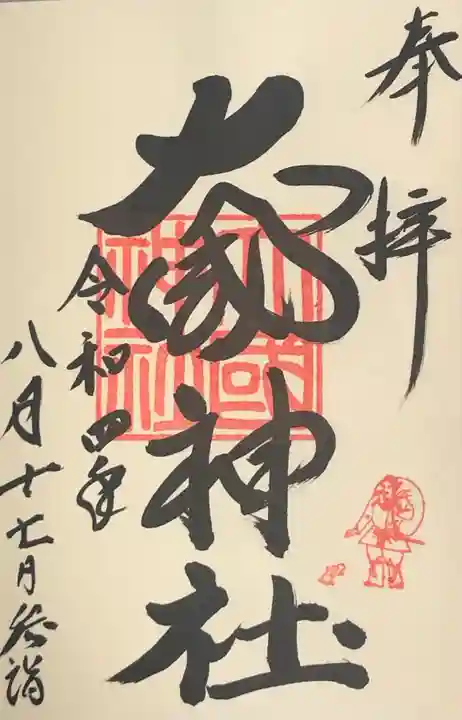 奉拝
大國神社
大國神社
令和四年
八月十七日参詣